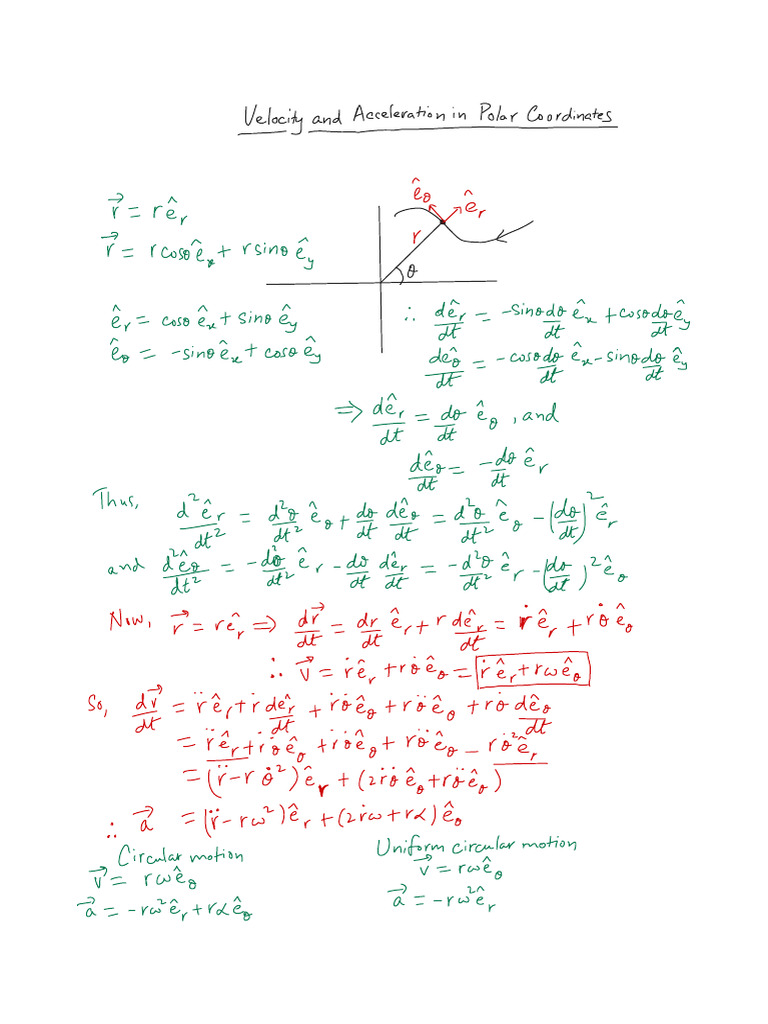 Velocity and Acceleration in Polar Coordinates
r⃗ = r ê_r
r⃗ = r cosθ ê_x + r sinθ ê_y
ê_θ ê_r
r
θ
ê_r = cosθ ê_x + sinθ ê_y
ê_θ = -sinθ ê_x + cosθ ê_y
∴ dê_r/dt = -sinθ dθ/dt ê_x + cosθ dθ/dt ê_y
dê_θ/dt = -cosθ dθ/dt ê_x - sinθ dθ/dt ê_y
⇒ dê_r/dt = dθ/dt ê_θ, and
dê_θ/dt = -dθ/dt ê_r
Thus, d²ê_r/dt² = d²θ/dt² ê_θ + dθ/dt dê_θ/dt = d²θ/dt² ê_θ - (dθ/dt)² ê_r
and d²ê_θ/dt² = -d²θ/dt² ê_r - dθ/dt dê_r/dt = -d²θ/dt² ê_r - (dθ/dt)² ê_θ
Now, r⃗ = r ê_r ⇒ dr⃗/dt = dr/dt ê_r + r dê_r/dt = ṙ ê_r + r θ̇ ê_θ
∴ v⃗ = ṙ ê_r + r θ̇ ê_θ = ṙ ê_r + r ω ê_θ
So, dv⃗/dt = r̈ ê_r + ṙ dê_r/dt + ṙ θ̇ ê_θ + r θ̈ ê_θ + r θ̇ dê_θ/dt
= r̈ ê_r + ṙ θ̇ ê_θ + ṙ θ̇ ê_θ + r θ̈ ê_θ - r θ̇² ê_r
= (r̈ - r θ̇²) ê_r + (2ṙ θ̇ ê_θ + r θ̈ ê_θ)
∴ a⃗ = (r̈ - rω²) ê_r + (2ṙω + rα) ê_θ
Circular motion
v⃗ = rω ê_θ
a⃗ = -rω² ê_r + rα ê_θ
Uniform circular motion
v⃗ = rω ê_θ
a⃗ = -rω² ê_r